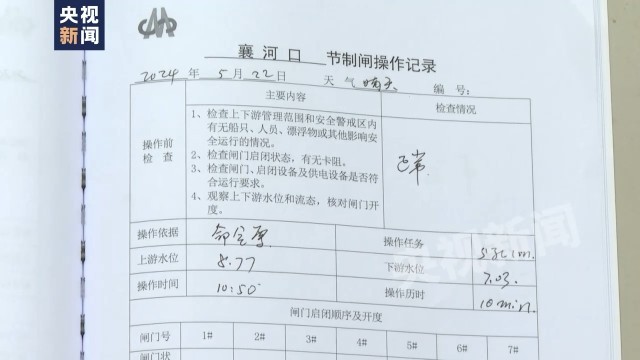 央视
新闻
襄河口 节制闸操作记录
2024 年 5 月 22 日 天气 晴天 编号:
主要内容 检查情况
操作前
检查
1、检查上下游管理范围和安全警戒区内
有无船只、人员、漂浮物或其他影响安
全运行的情况。
2、检查闸门启闭状态，有无卡阻。
3、检查闸门、启闭设备及供电设备是否符
合运行要求。
4、观察上下游水位和流态，核对闸门开
度。
正常
操作依据 操作任务
上游水位 8.77 下游水位 7.03
操作时间 10:50 操作历时 10min
闸门启闭顺序及开度
闸门号 1# 2# 3# 4# 5# 6# 7#
闸门状
央视新闻